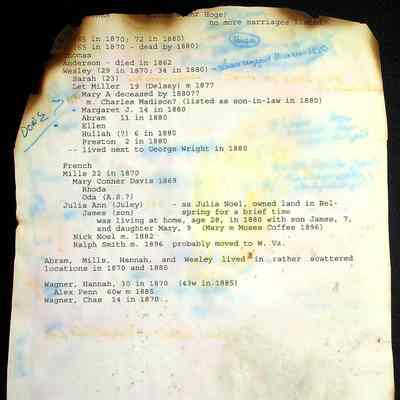 Hoge)
no more marriages listed
65 in 1870; 72 in 1880)
(65 in 1870 - dead by 1880)
Thomas
Anderson - died in 1862
Wesley (29 in 1870; 34 in 1880)
Sarah (23)
Let Miller 19 (Delsay) m 1877
Mary A deceased by 1880??
m. Charles Madison? (listed as son-in law in 1880)
Margaret J. 14 in 1880
Abram 11 in 1880
Ellen
Hullah (?) 6 in 1880
Preston 2 in 1880
-- lived next to George Wright in 1880
DOB's ?
French
Mills 22 in 1870
Mary Conner Davis 1869
Rhoda
Oda (A.S.?)
Julia Ann (Juley) - as Julia Noel, owned land in Bel-
James (son) spring for a brief time
was living at home, age 28, in 1880 with son James, 7,
and daughter Mary, 9 (Mary m Moses Coffee 1896)
Nick Noel m. 1882
Ralph Smith m. 1896 probably moved to W. Va.
Abram, Mills, Hannah, and Wesley lived in rather scattered
locations in 1870 and 1880
Wagner, Hannah, 30 in 1870 (43w in 1885)
Alex Penn 60w m 1885
Wagner, Chas 14 in 1870.